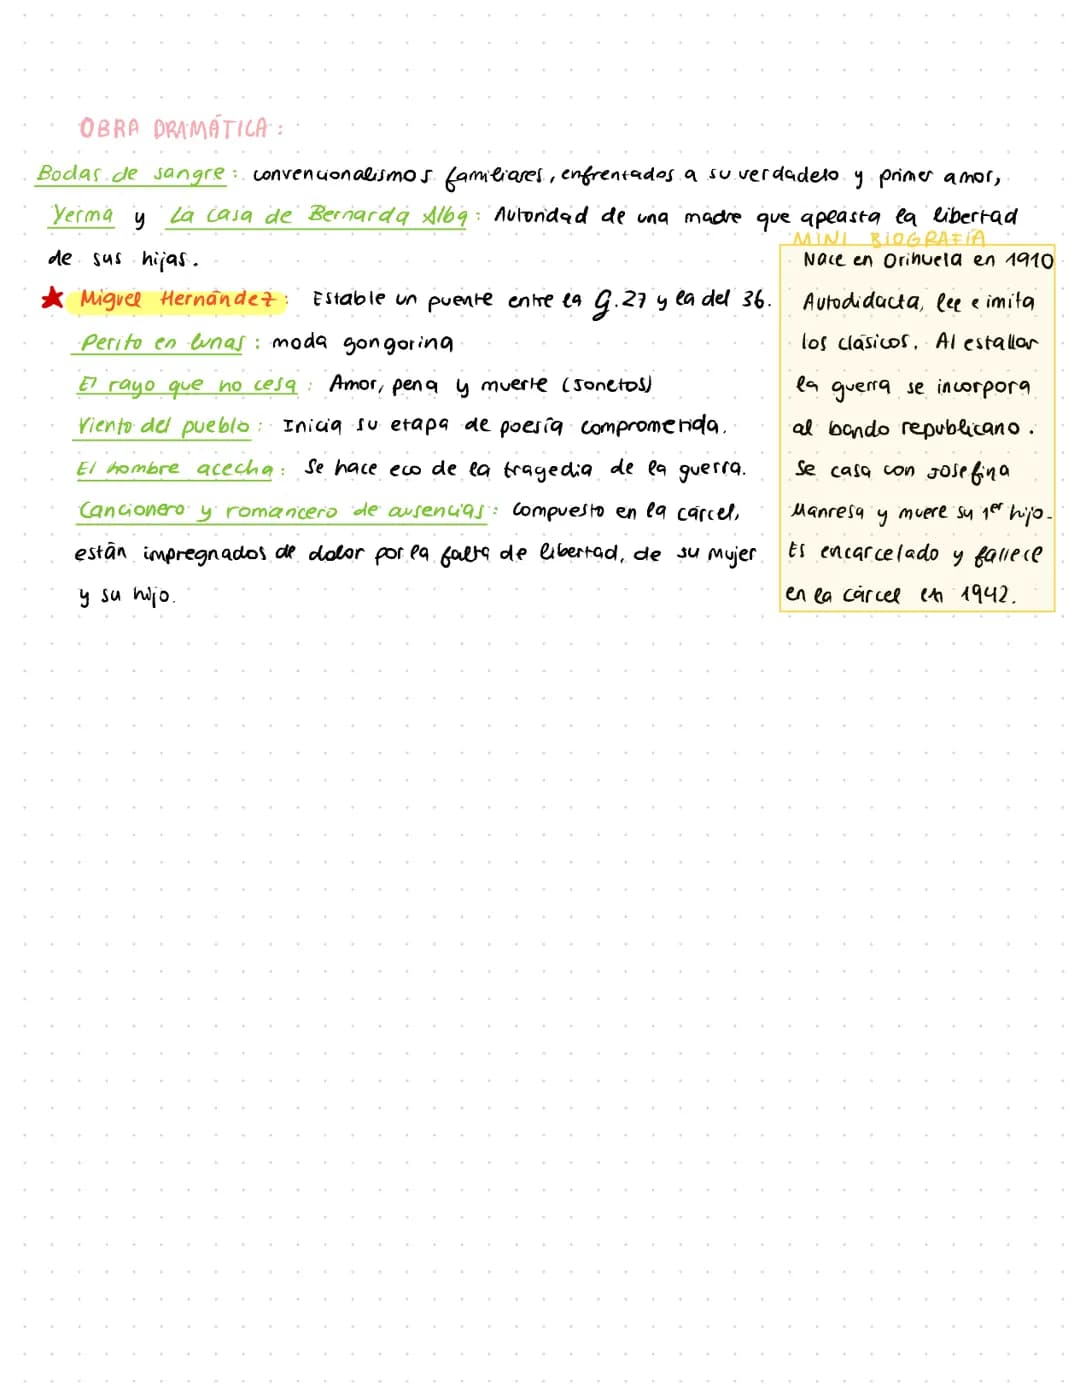 OBRA DRAMÁTICA:
Bodas de sangre: convencionalismos familiares, enfrentados a su verdadero y primer amor,
Yerma y La casa de Bernarda Alba: Autoridad de una madre que apeasta la libertad
de sus hijas.
★ Miguel Hernández: Estable un puente entre la g.27 y la del 36.
Perito en lunas: moda gongorina
El rayo que no cesa: Amor, pena y muerte (sonetos)
Viento del pueblo: Inicia su etapa de poesía comprometida.
El hombre acecha: Se hace eco de la tragedia de la guerra.
Cancionero y romancero de ausencias: Compuesto en la cárcel,
están impregnados de dolor por la falta de libertad, de su mujer
y su hijo.
MINI BIOGRAFÍA
Nace en Orihuela en 1910
Autodidacta, lee e imita
los clásicos. Al estallar
la guerra se incorpora
al bando republicano.
Se casa con Josefina
Manresa y muere su 1er hijo.
Es encarcelado y fallece
en la cárcel en 1942.